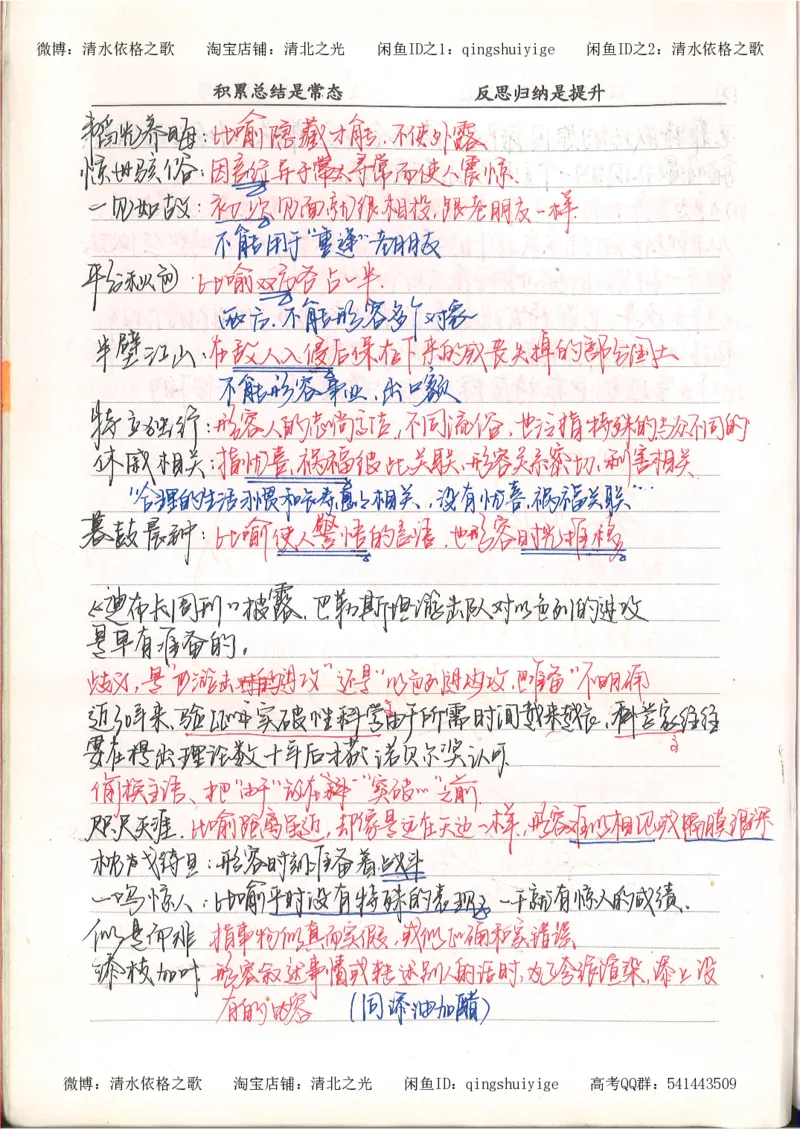 微博：清水依格之歌 淘宝店铺：清北之光 闲鱼ID之1：qingshuiyige 闲鱼ID之2：清水依格之歌
积累总结是常态 反思归纳是提升
韬光养晦：比喻隐藏才能，不使外露
惊世骇俗：因言行异于常太寻常而使人震惊.
一见如故：初次见面就很相投，跟老朋友一样.
不能用于“重逢”老朋友
平分秋色 比喻双方各占一半.
两方，不能形容多个对象
半壁江山：在敌人入侵后保存下来的或丧失掉的部分国土
不能形容事业、出口额
特立独行：形容人的志尚高洁，不同流俗，也泛指特殊的与众不同的
休戚相关：指忧喜、祸福彼此关联，形容关系密切，利害相关
“合理的生活习惯和长寿息息相关，没有忧喜、祸福关联”…
暮鼓晨钟：比喻使人警悟的言语，也形容时光推移
《迪布长周刊》披露，巴勒斯坦游击队对以色列的进攻
是早有准备的。
歧义，是“巴游击对的进攻”还是“以色列进攻，巴准备”不明确
近30年来，验证中突破性科学由于所需时间越来越长，科学家经经
要在提出理论数十年后才获诺贝尔奖认可.
偷换主语、把“由于”放在“突破…”之前
咫尺天涯. 比喻距离虽近，却像是远在天边一样，形容难以相见或隔膜很深
枕戈待旦：形容时刻准备着战斗
一鸣惊人：比喻平时没有特殊的表现，一干就有惊人的成绩.
似是而非 指事物似真而实假，或似正确和实错误.
添枝加叶. 形容叙述事情或转述别人的话时，为了夸张渲染，添上没
有的内容 （同添油加醋）
微博：清水依格之歌 淘宝店铺：清北之光 闲鱼ID：qingshuiyige 高考QQ群：541443509